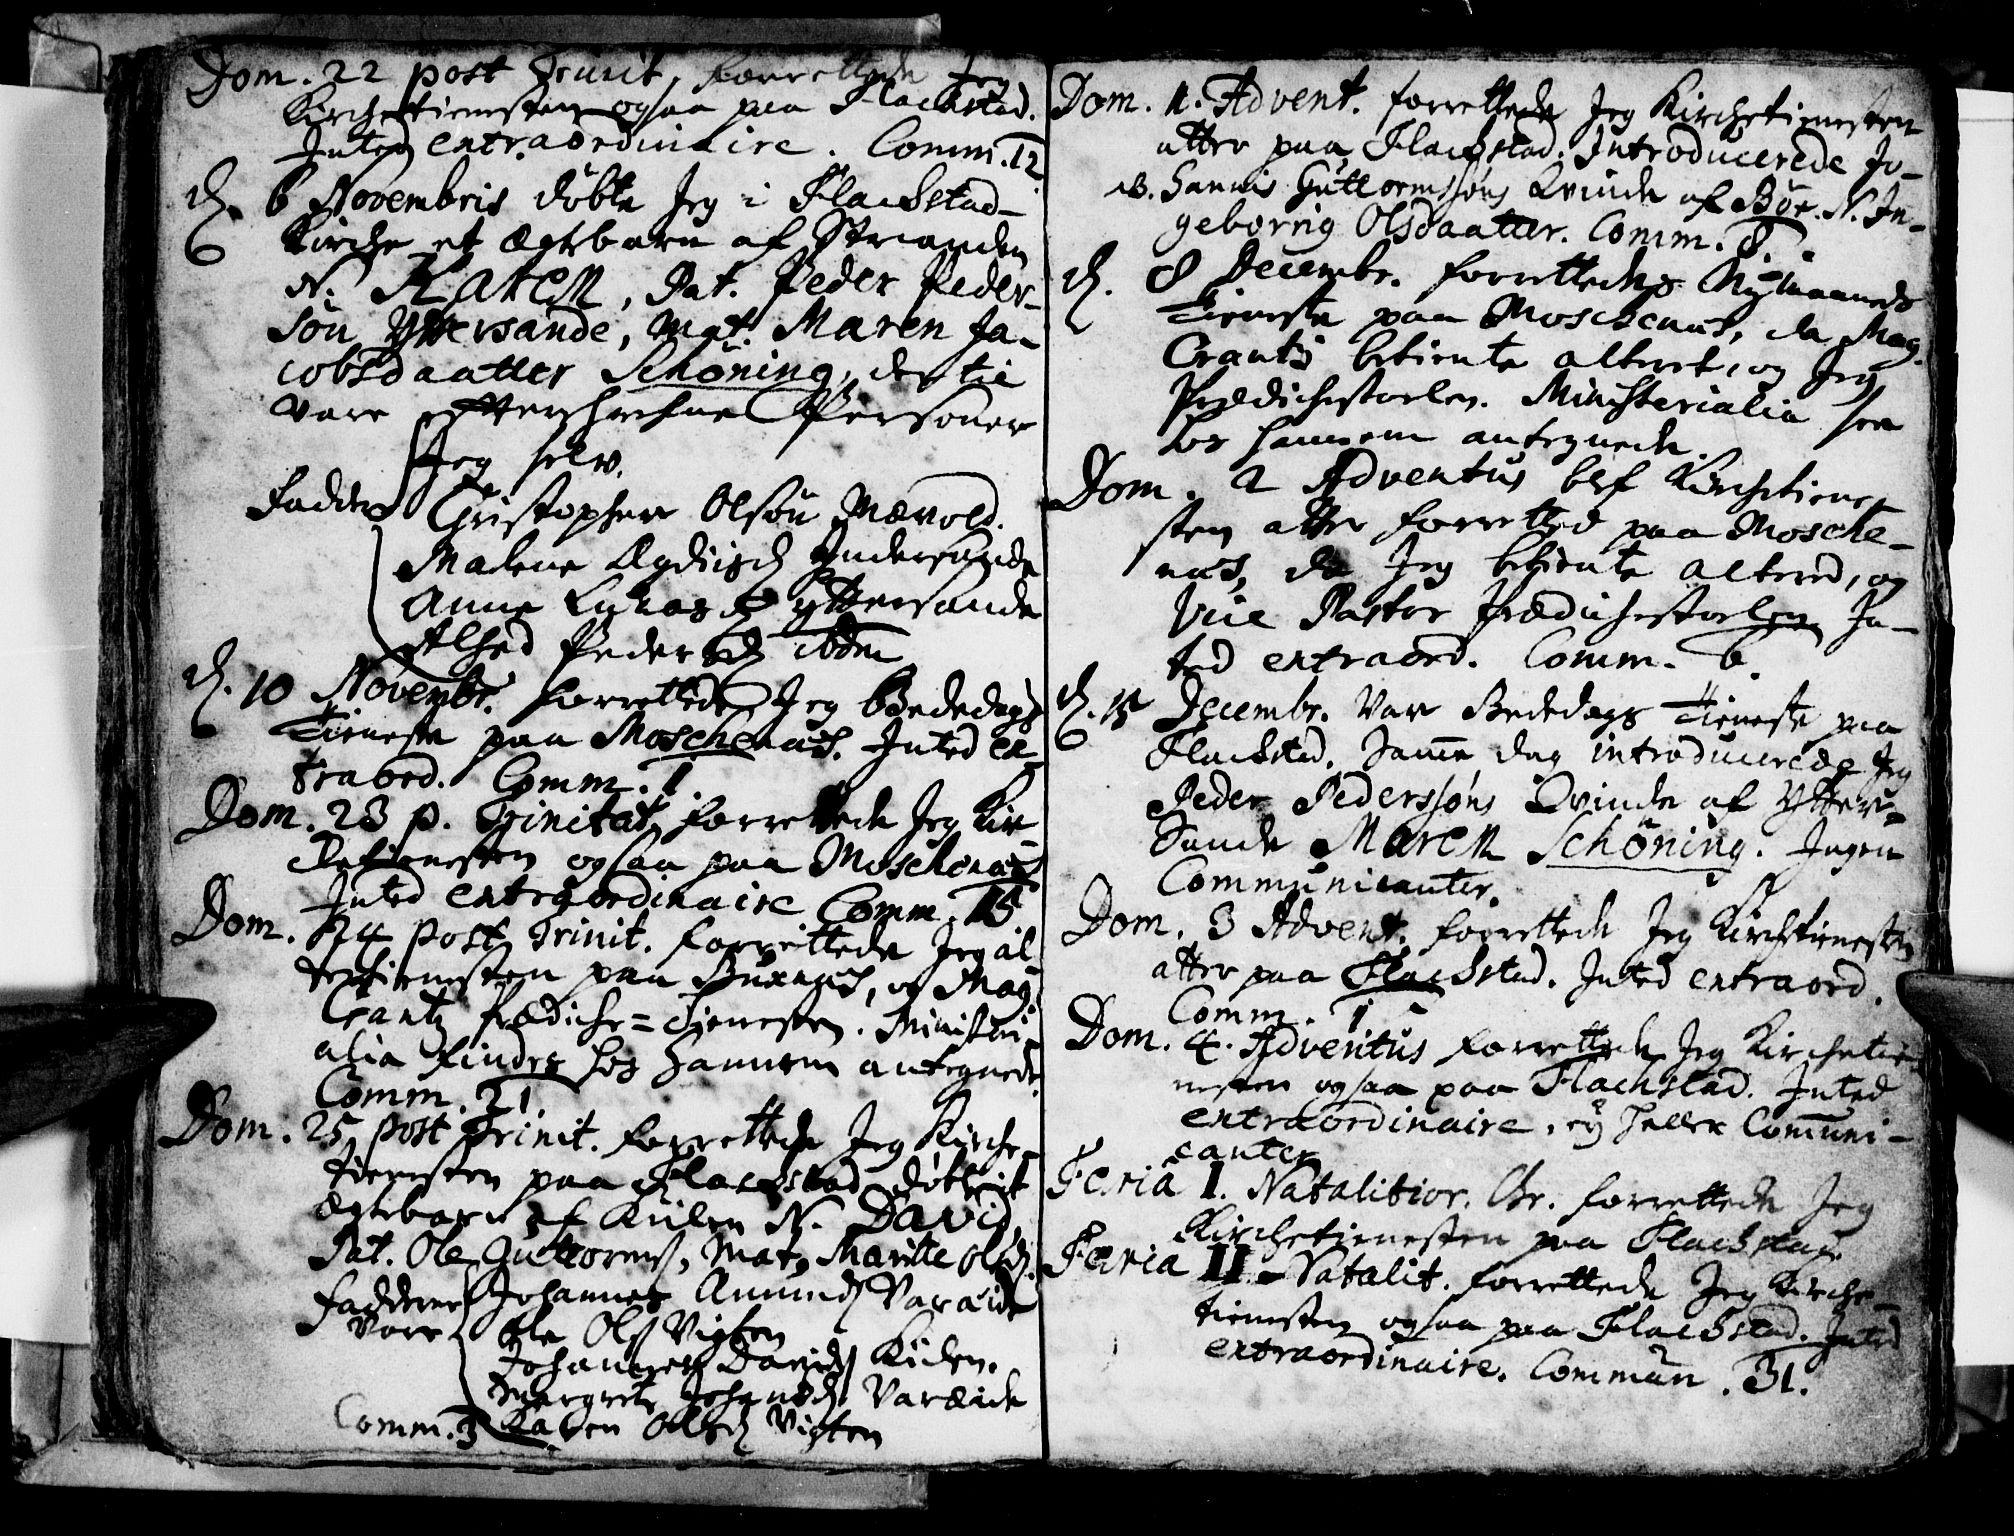 Dom. 22 post Trinit, forrettede Jeg
Kirchetienesten ogsaa paa Flackstad.
Inted extraordinaire. Comm. 12
D. 6 Novembris döbte Jeg i Flackstad-
Kirche et Ægtebarn af Stranden
N. KAREN, Pat. Peder Peder-
sön Yttersande, Mat. Maren Ja-
cobsdaatter Schöning, der til
vare Personer
Jeg selv.
Fadder Christopher Olsön Mærvold.
Malene Indersande
Anne Yttersande
Alhed Peders D ibdm
D. 10 Novembr. forrettede Jeg Bededags
Tieneste paa Moschenæs. Inted ex-
traord. Comm. 1.
Dom. 23 p. Trinitat. forrettede Jeg Kir-
chetienesten ogsaa paa Moschenæs
Inted extraordinaire Comm. 15
Dom. 24 post Trinit. forrettede Jeg al-
tertienesten paa Buxnæs, og Mag.
Crantz Prædiche=Tienesten. Ministeri-
alia findes hos hannem antegnede
Comm. 21.
Dom. 25 post Trinit. forrettede Jeg Kirche-
tienesten paa Flackstad döbte it
Ægtebarn af Kilen N. DAVID,
Pat. Ole Guttorms, Mat. Maritte Olsd.
Fadderne Johannes Amund Varæide
vare Ole Ols Vigten
Johannes David Kilen.
Margrete Johansd. Varæide
Comm. 3 Karen Olsd Vigten
Dom. 1. Advent. forrettede Jeg Kirchetienesten
atter paa Flackstad. Introducerede Jo-
hannis Guttormsföns Qvinde af Böe. N. In-
geborrig Olsdaatter. Comm. 8.
D. 8 Decembr. forrettedes Nymaaneds
Tieneste paa Moschenæs, da Mag.
Crantz betiente alteret, og Jeg
Prædichestolen. Ministerialia see
hos hannem antegnede.
Dom. 2 Adventus blef Kirchetiene-
sten atter forretted paa Mosche-
næs, da Jeg betiente altered, og
Vice Pastor Prædichestolen In-
ted extraord. Comm. 6.
D. 15 Decembr. Var Bededags Tieneste paa
Flackstad. Samme dag introducerede Jeg
Peder Pedersföns Qvinde af Ytter-
sande MAREN Schöning. Ingen
Communicanter.
Dom. 3 Advent. forrettede Jeg Kirchetienesten
atter paa Flackstad. Inted extraord.
Comm. 1
Dom. 4. Adventus forrettede Jeg Kirchetie-
nesten ogsaa paa Flachstad. Inted
extraordinaire, ey heller Communi-
canter
Feria I. Natalitior. Chr. forrettede Jeg
Kirchetienesten paa Flackstad
Feria II. Natalit. forrettede Jeg Kirche-
tienesten ogsaa paa Flackstad. Inted
extraordinaire. Commun. 31.